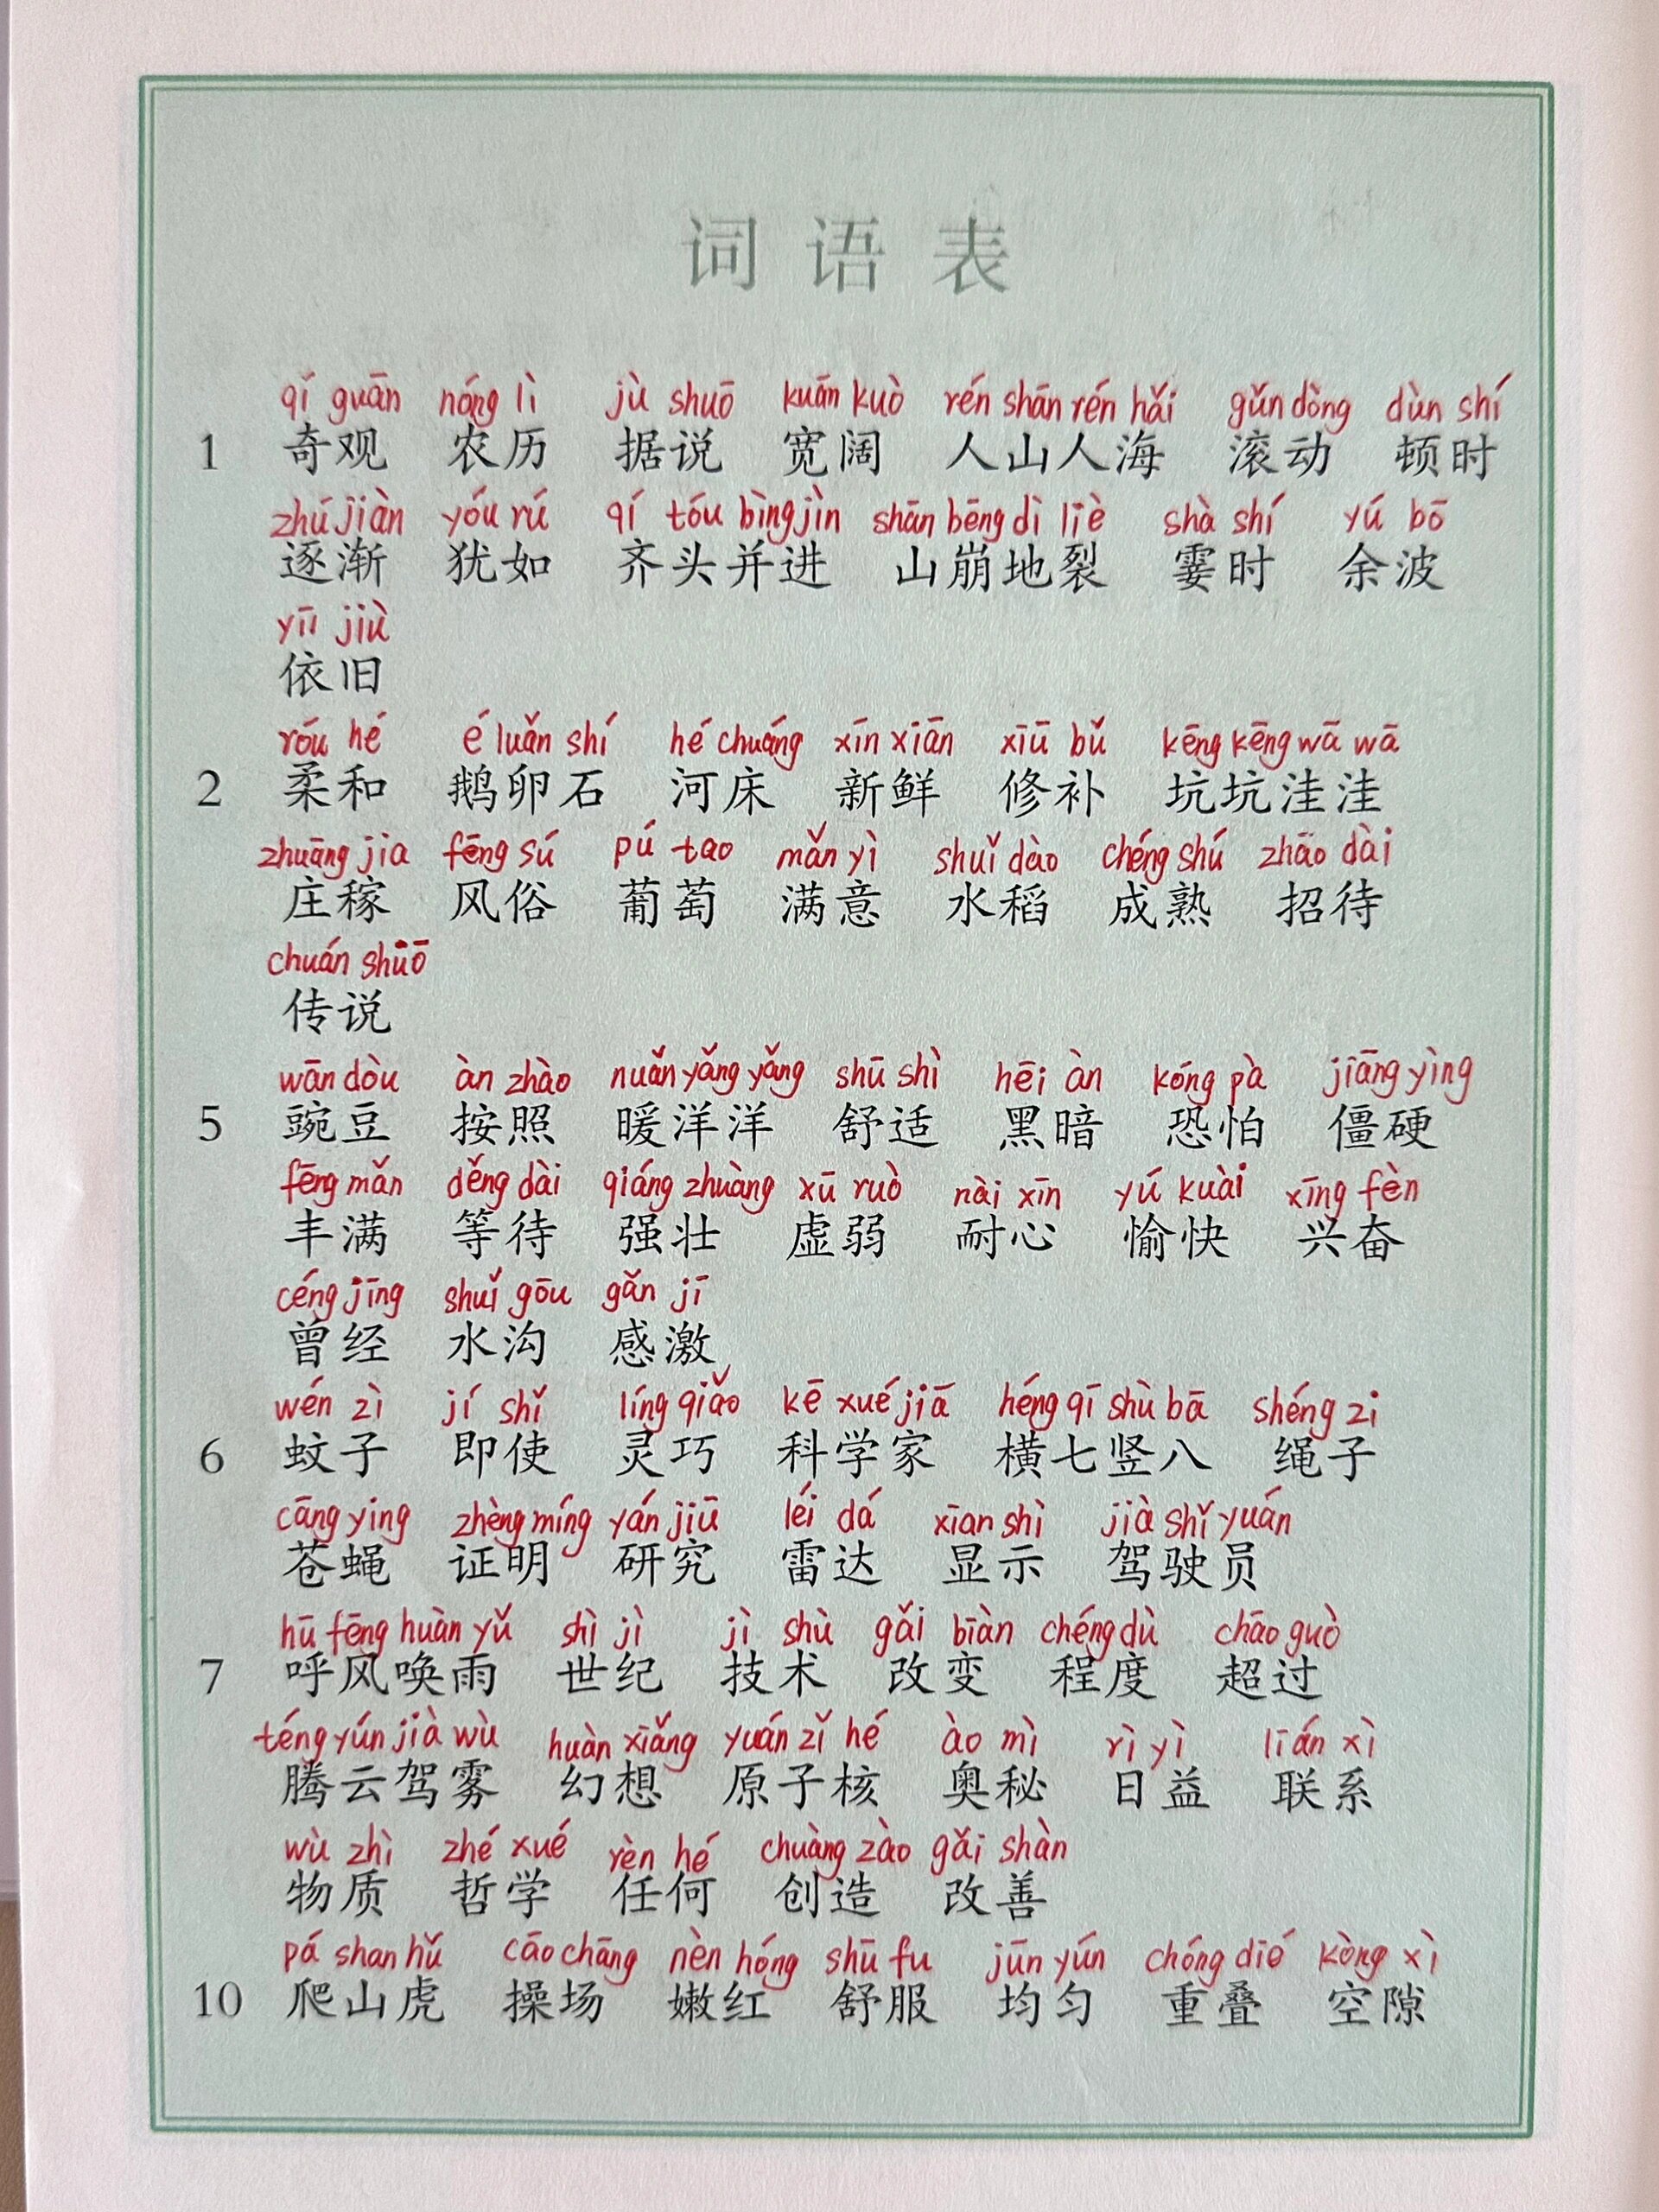 词语表
qí guān nóng lì jù shuō kuān kuò rén shān rén hǎi gǔn dòng dùn shí
1 奇观 农历 据说 宽阔 人山人海 滚动 顿时
zhú jiàn yóu rú qí tóu bìng jìn shān bēng dì liè shà shí yú bō
逐渐 犹如 齐头并进 山崩地裂 霎时 余波
yī jiù
依旧
róu hé é luǎn shí hé chuáng xīn xiān xiū bǔ kēng kēng wā wā
2 柔和 鹅卵石 河床 新鲜 修补 坑坑洼洼
zhuāng jia fēng sú pú tao mǎn yì shuǐ dào chéng shú zhāo dài
庄稼 风俗 葡萄 满意 水稻 成熟 招待
chuán shuō
传说
wān dòu àn zhào nuǎn yǎng yǎng shū shì hēi àn kóng pà jiāng yìng
5 豌豆 按照 暖洋洋 舒适 黑暗 恐怕 僵硬
fēng mǎn děng dài qiáng zhuàng xū ruò nài xīn yú kuài xīng fèn
丰满 等待 强壮 虚弱 耐心 愉快 兴奋
céng jīng shuǐ gōu gǎn jī
曾经 水沟 感激
wén zì jí shǐ líng qiǎo kē xué jiā héng qī shù bā shéng zi
6 蚊子 即使 灵巧 科学家 横七竖八 绳子
cāng ying zhèng míng yán jiū léi dá xian shì jià shǐ yuán
苍蝇 证明 研究 雷达 显示 驾驶员
hū fēng huàn yǔ shì jì jì shù gǎi biàn chéng dù chāo guò
7 呼风唤雨 世纪 技术 改变 程度 超过
téng yún jià wù huàn xiǎng yuán zǐ hé ào mì rì yì lián xì
腾云驾雾 幻想 原子核 奥秘 日益 联系
wù zhì zhé xué rèn hé chuàng zào gǎi shàn
物质 哲学 任何 创造 改善
pá shan hǔ cāo chāng nèn hóng shū fu jūn yún chóng dié kòng xì
10 爬山虎 操场 嫩红 舒服 均匀 重叠 空隙